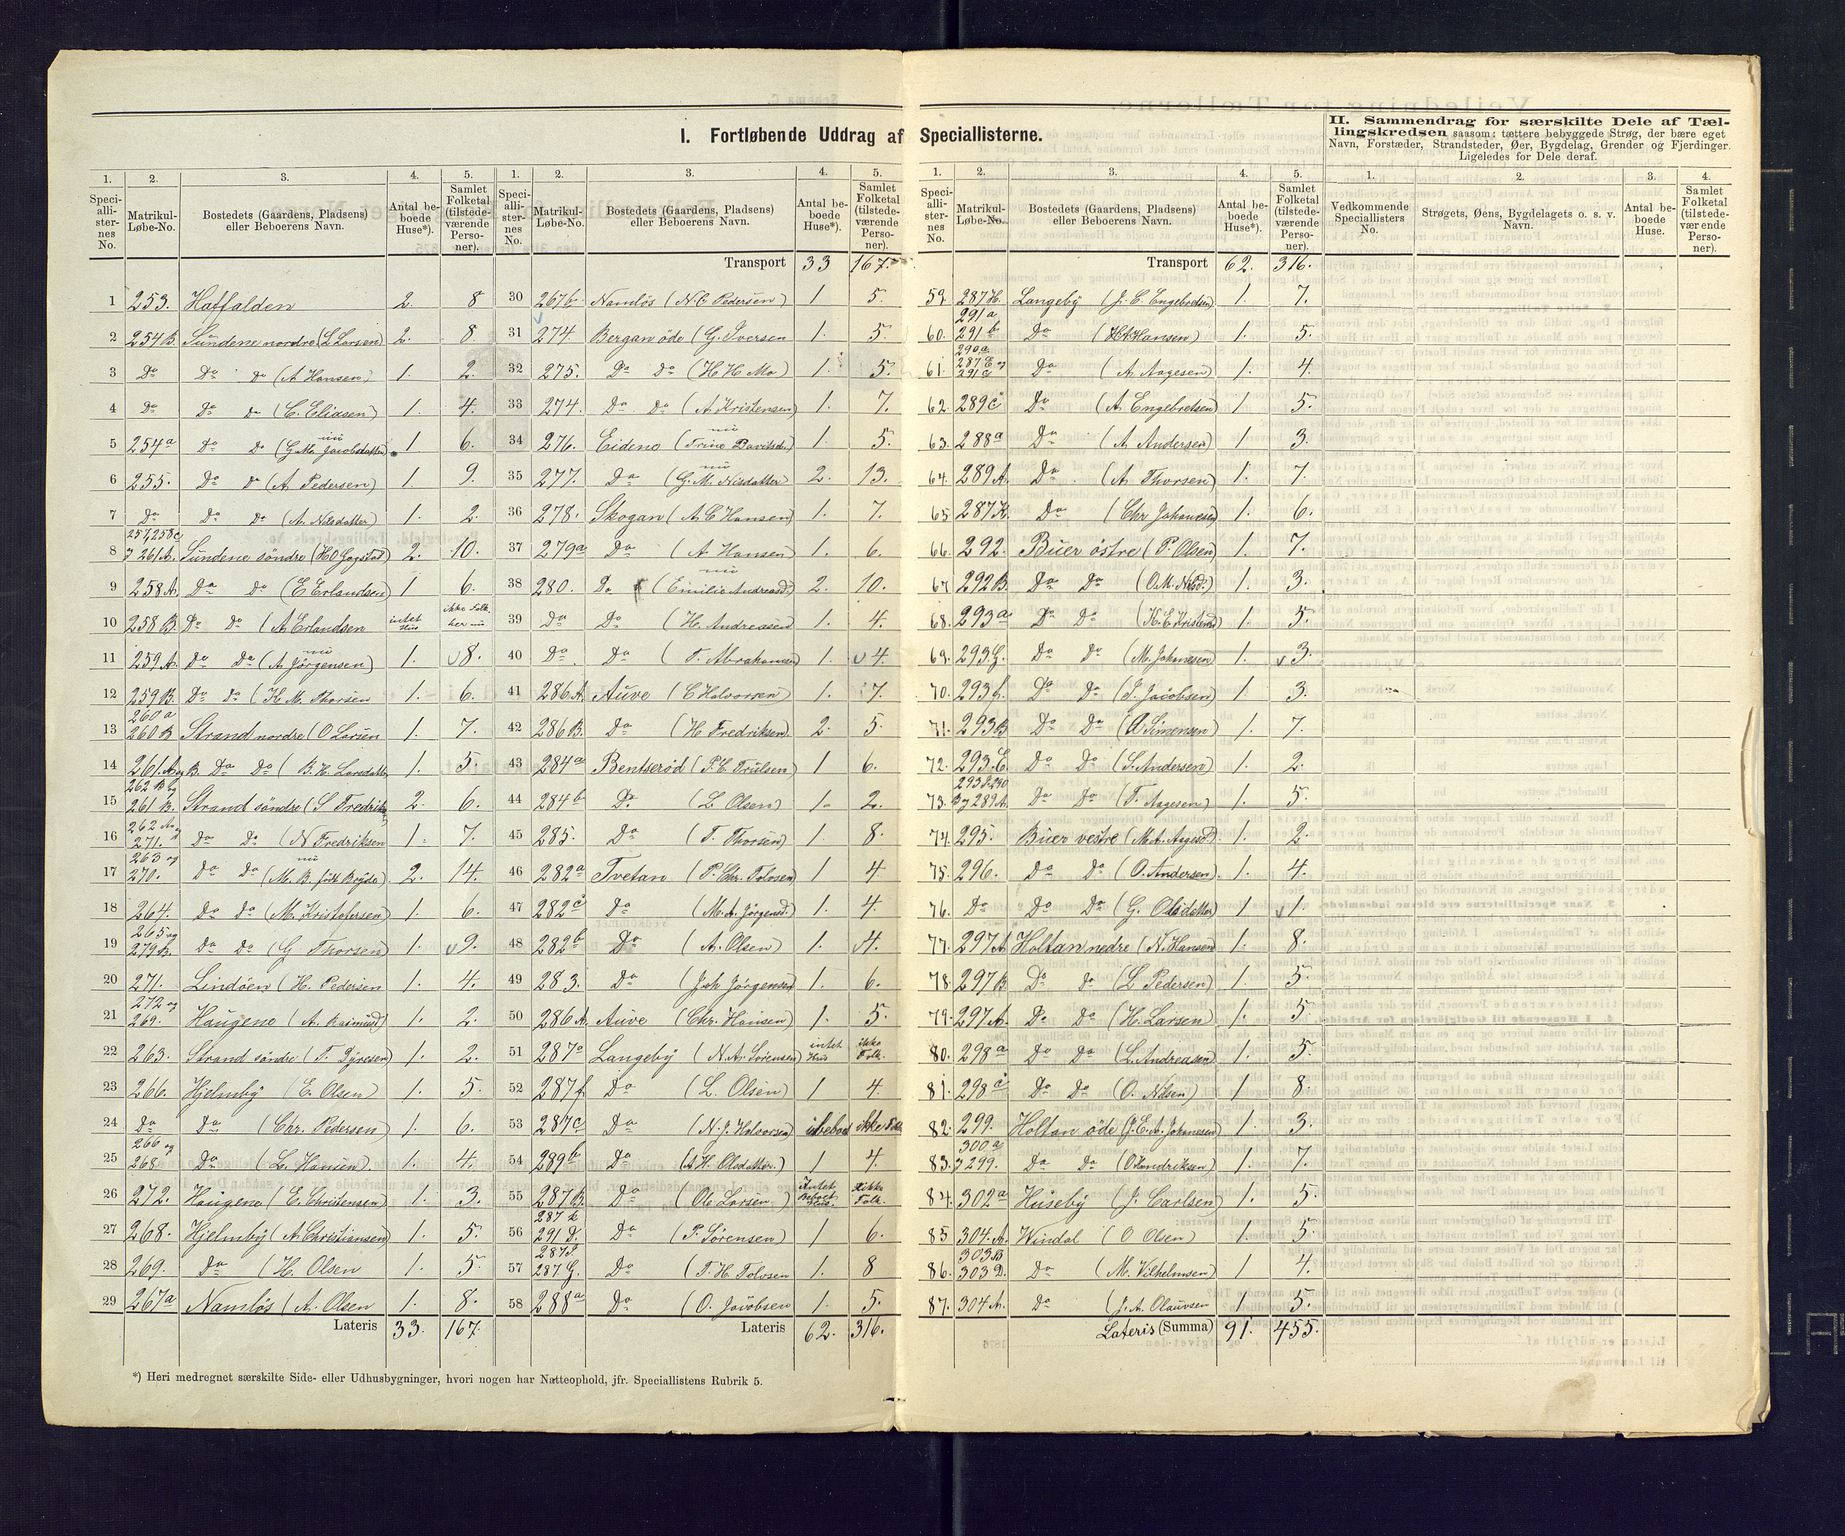 I. Fortløbende Uddrag af Speciallisterne.
1. 2. 3. 4. 5. 1. 2. 3. 4. 5.
Speciallisternes No. Matrikul-Løbe-No. Bostedets (Gaardens, Pladsens) eller Beboerens Navn. Antal beboede Huse*). Samlet Folketal (tilstedeværende Personer).
Speciallisternes No. Matrikul-Løbe-No. Bostedets (Gaardens, Pladsens) eller Beboerens Navn. Antal beboede Huse*). Samlet Folketal (tilstedeværende Personer).
1 253. Haffalden 2. 8
2 254B. Sundene nordre (L Larsen) 2. 8.
3 Do Do Do (A Hansen) 1. 2.
4 Do Do Do (C. Eliasen) 1. 4.
5 254a Do Do (G Ma Jacobsdatter) 1 6.
6 255. Do Do (A. Pedersen) 1 9.
7 Do Do Do (A. Nilsdatter) 1. 2.
257, 258c
8 261A. Sundene söndre (HO Gogstad 2. 10.
9 258A. Do Do (E Erlandsen) 1 6.
10 258B. Do Do (A Erlandsen intet Hus ikke Folk her nu
11 259A. Do Do (A Jörgensen) 1. 8.
12 259B. Do Do (K. M. Thorsen 1. 6.
260a
13 260B Strand nordre (O Larsen 1. 7.
14 261.A og B. Do Do (B. H. Larsdatter 1. 5.
262 B og
15 261B. Strand söndre (S Fredriks 2. 6.
262 A og
16 271. Do Do (N Fredriksen 1. 7.
263 og nu
17 270. Do Do (M. B. 2. 14.
18 264. Do Do (M. Kristofersen) 1. 6.
265 og
19 279B. Do Do (G Thorsen) 1. 9.
20 271. Lindöen (H. Pedersen 1. 4.
272 og
21 269. Haugene (A. Rasmusd) 1. 2.
22 263. Strand söndre (T. Dyresen) 1. 2.
23 266. Hjelmby (E. Olsen) 1. 5.
24 Do Do (Chr. Pedersen) 1. 6.
266 og
25 268. Do (L. Hansen). 1. 4.
26 272. Haugene (E. Christensen) 1. 3.
27 268. Hjelmby (A. Christiansen) 1. 5.
28 269. Do (H. Olsen 1. 5.
29 267a Namlös (A. Olsen 1. 8.
Lateris 33. 167.
Transport 33 167.
30 267b Namlös (N. C Pedersen) 1 5.
31 274. Bergan öde (G. Iversen 1. 5.
32 275. Do Do (H H Mo) 1. 5.
33 274. Do Do (A Kristensen) 1. 7.
34 276. Eidene (Trine Davidsdr.) 1. 5.
35 277. Do (G. M. Nisdatter 2. 13.
36 278. Skogan (A. C Hansen) 1. 7.
37 279a Do (A Hansen) 1. 6.
38 280. Do (Emilie Andreasd.) 2. 10.
39 Do Do (H. Andreasen 1. 4.
40 Do Do (T. Abrahamsen) 1. 4.
41 286A. Auve (C Halvorsen) 1. 7.
42 286B. Do (H Fredriksen) 2. 5
43 284a Bentserød (P. C. Trulsen) 1 6.
44 284b Do (L Olsen) 1. 2.
45 285. Do (T. Thorsen) 1. 8.
46 282a Tvetan (P. Chr. Tolvsen 1 4
47 282c Do (M. A. Jörgensd.) 1. 4.
48 282b Do (A. Olsen) 1. 4.
49 283. Do (Joh Jörgensen 1. 6.
50 286A. Auve (Chr. Hansen) 1. 5.
51 287a Langeby (N. A. Sörensen) intet Hus ikke Folk.
52 287f. Do (L. Olsen) 1 4
53 287c. Do (N. J. Halvorsen) ubeboet ikke Folk
54 289b Do (A. H. Olsdatter.) 1 4.
55 287B. Do (Ole Larsen) Intet Beboet Hus ikke Folk.
287k
56 291D. Do (P. Sörensen) 1 6.
57 287G. Do (T. H Tolvsen 1. 8
58 288a Do (O. Jacobsen 1. 5.
Lateris 62. 316.
*) Heri medregnet særskilte Side- eller Udhusbygninger, hvori nogen har Natteophold, jfr. Speciallistens Rubrik 5.
1. 2. 3. 4. 5.
Speciallisternes No. Matrikul-Løbe-No. Bostedets (Gaardens, Pladsens) eller Beboerens Navn. Antal beboede Huse*). Samlet Folketal (tilstedeværende Personer).
Transport 62. 316.
59. 287H. Langeby (J. E. Engebretsen) 1. 7.
291a
60. 291b Do (H A Hansen) 1. 5.
290a.
287E og
61. 291c Do (A. Aagesen) 1. 4.
62. 289c Do (A. Engebretsen 1. 5.
63. 288a Do (A. Andersen) 1. 3.
64. 289A. Do (A Thorsen) 1. 7.
65 287K. Do (Chr Johnsen 1. 6.
66. 292. Buer östre (P. Olsen) 1. 7.
67. 292B. Do Do (O. M. Nilsd.) 1. 3.
68. 293a Do Do (K. E Kristens) 1. 5.
69. 293.G. Do Do (M. Johansen) 1. 3.
70. 293f. Do Do (I. Jacobsen) 1. 3.
71. 293B Do Do (A Simensen) 1. 7.
72. 293.E Do Do (S. Andersen) 1. 2.
73. 289A. Do Do (T. Aagesen) 1. 5.
74. 295. Buer vestre (M. A. Aagesd.) 1. 2.
75. 296. Do Do (O. Andersen). 1. 4.
76. Do Do Do (G. Olsdatter) 1 1.
77. 297A Holtan nedre (N. Hansen 1. 8.
78. 297B. Do Do (L Pedersen) 1. 5.
79. 297A. Do Do (H. Larsen) 1. 5
80. 298a Do Do (L. Andreasen) 1. 5.
81. 298c Do Do (O. Nilsen) 1 8.
82. 299. Holtan öde (J. E. A. Johansen) 1. 3.
300a
83. 299. Do Do (O. Hendriksen) 1. 7.
84. 302a Huseby (J. Carlsen) 1. 5.
85 304.A. Windal (O Olsen) 1. 5.
303B
86. 303D. Do (M. Vilhelmsen) 1 4.
87. 304A. Do (J. A. Olausen 1. 5.
Lateris (Summa) 91. 455.
II. Sammendrag for særskilte Dele af Tællingskredsen saasom: tættere bebyggede Strøg, der bære eget Navn, Forstæder, Strandsteder, Øer, Bygdelag, Grender og Fjerdinger. Ligeledes for Dele deraf.
1. 2. 3. 4.
Vedkommende Speciallisters No. Strøgets, Øens, Bygdelagets o. s. v. Navn. Antal beboede Huse. Samlet Folketal (tilstedeværende Personer).